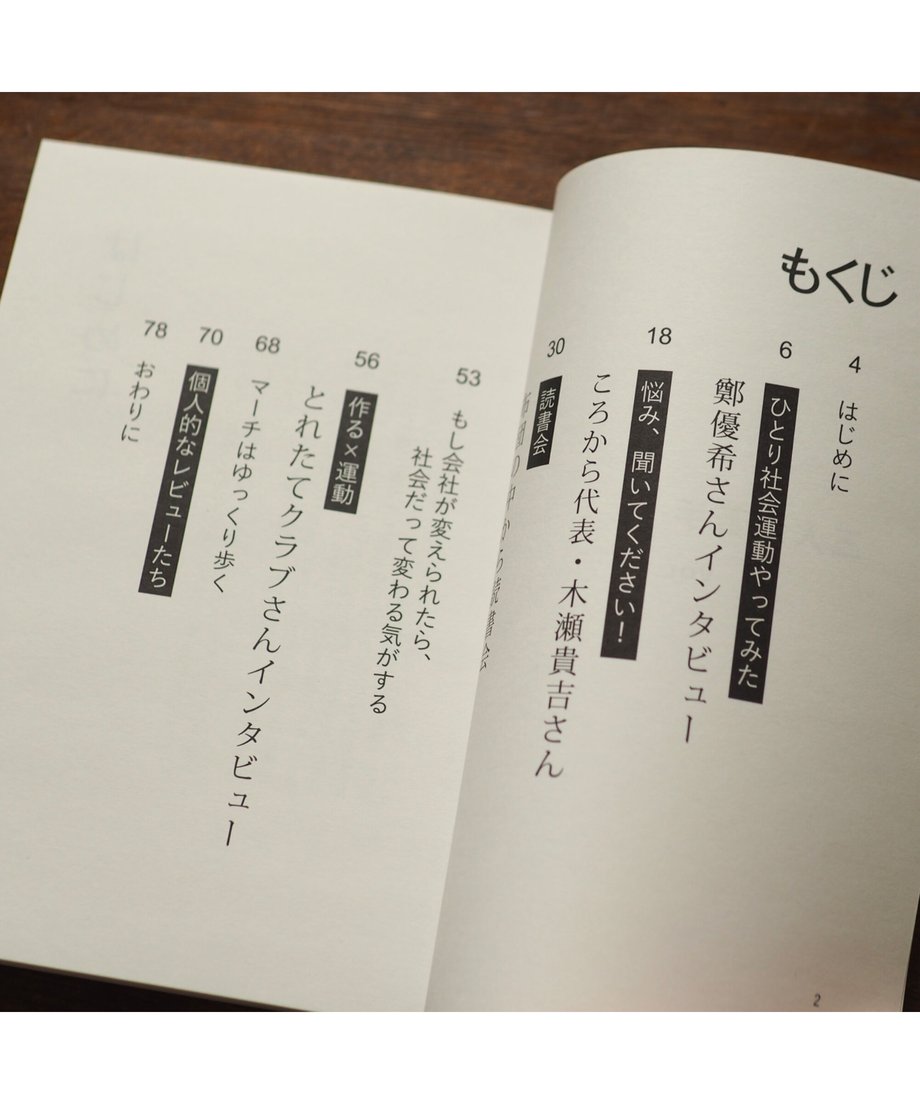 もくじ
4 はじめに
6 ひとり社会運動やってみた
鄭優希さんインタビュー
18 悩み、聞いてください！
ころから代表・木瀬貴吉さん
30 読書会
の中から読書会
53 もし会社が変えられたら、
社会だって変わる気がする
56 作る×運動
とれたてクラブさんインタビュー
68 マーチはゆっくり歩く
70 個人的なレビューたち
78 おわりに
2